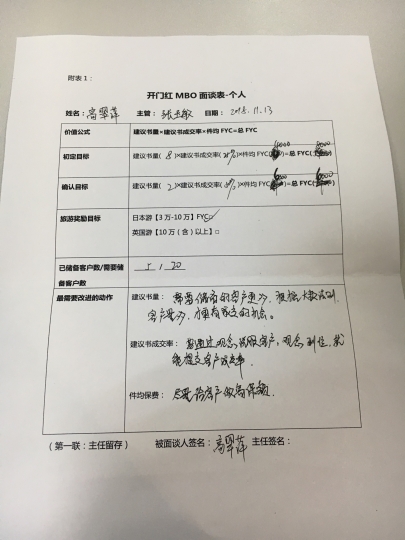 附表1:
开门红 MBO 面谈表-个人
姓名: 高翠萍 主管: 张玉敏 日期: 2018.11.13
价值公式 建议书量×建议书成交率×件均 FYC=总 FYC
初定目标 建议书量( 8 )×建议书成交率( )×件均 FYC( )=总 FYC( )
确认目标 建议书量( 2 )×建议书成交率( )×件均 FYC( )=总 FYC( )
旅游奖励目标 日本游【3 万-10 万】FYC
英国游【10 万(含)以上】□
已储备客户数/需要储备客户数 5 / 20
最需要改进的动作 建议书量: 需要储备的客户更多,
客户量多,才有成交的机会。
建议书成交率: 客户,观念到位,就
能提交客户成交率
件均保费: 客户做高保额
(第一联:主任留存) 被面谈人签名: 高翠萍 主任签名: